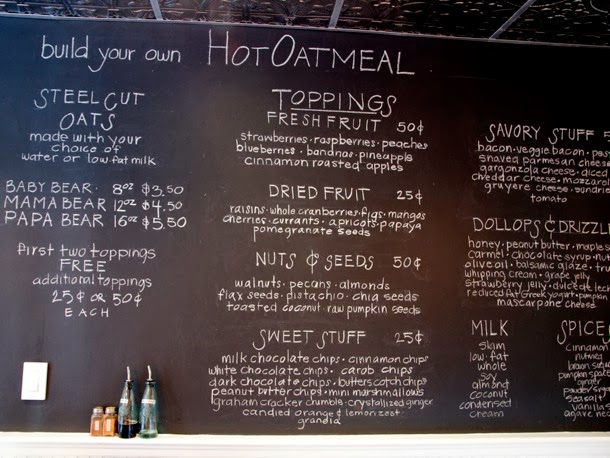 build your own HOT OATMEAL
STEEL CUT
OATS
made with your
choice of
water or low fat milk
BABY BEAR 8oz $3.50
MAMA BEAR 12oz $4.50
PAPA BEAR 16oz $5.50
first two toppings
FREE
additional toppings
25¢ OR 50¢
EACH
TOPPINGS
FRESH FRUIT 50¢
strawberries · raspberries · peaches
blueberries · bananas · pineapple
cinnamon roasted apples
DRIED FRUIT 25¢
raisins · whole cranberries · figs · mangos
cherries · currants · apricots · papaya
pomegranate seeds
NUTS & SEEDS 50¢
walnuts · pecans · almonds
flax seeds · pistachio · chia seeds
toasted coconut raw pumpkin seeds
SWEET STUFF 25¢
milk chocolate chips · cinnamon chips
white chocolate chips · carob chips
dark chocolate chips · butterscotch chips
peanut butter chips · mini marshmallows
graham cracker crumble · crystallized ginger
candied orange & lemon zest
granola
SAVORY STUFF
bacon · veggie bacon
shaved parmesan cheese
gargonzola cheese · diced
cheddar cheese · mozzarel
gruyere cheese · sundried
tomato
DOLLOPS & DRIZZLE
honey · peanut butter · maple
carmel · chocolate syrup
olive oil · balsamic glaze
whipping cream · grape jelly
strawberry jelly · dulce de lech
reduced fat Greek yogurt · pumpkin
mascarpone cheese
MILK
skim
low-fat
whole
soy
almond
coconut
condensed
cream
SPICE
cinnamon
nutmeg
brown sugar
pumpkin spice
ginger
powder sugar
sea salt
vanilla
agave nec